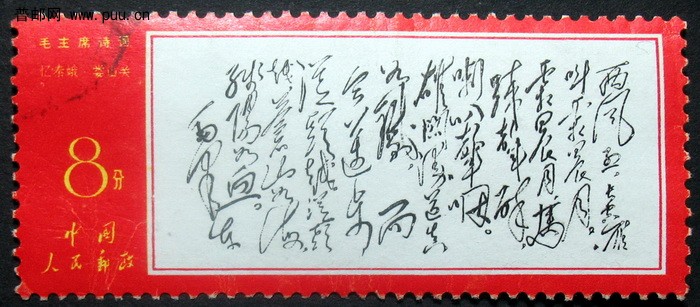 普邮网 www.puu.cn
毛主席诗词
忆秦娥 娄山关
8分
中国
人民郵政
西风烈,長空雁
叫霜晨月。
霜晨月,馬
蹄声碎,
喇叭声咽。
雄関漫道真
如鉄,而
今迈步
从头越。从头
越,苍山如海,
残陽如血。
毛泽东